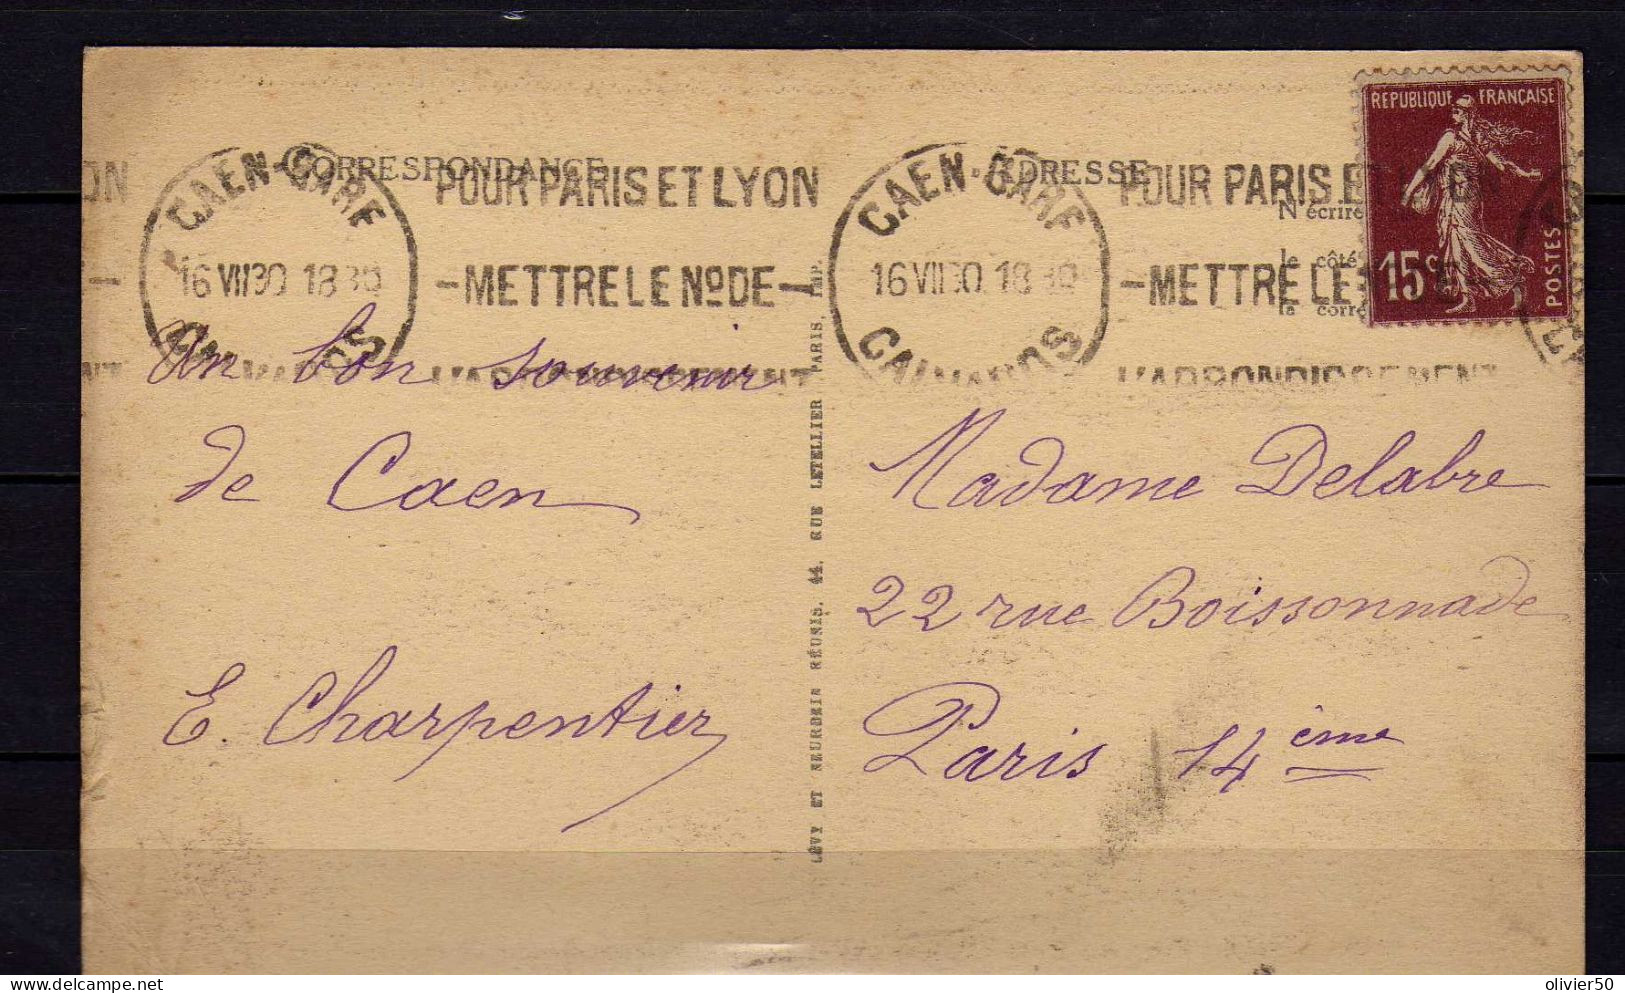 CORRESPONDANCE
CAEN-GARE
16 VII 30 18 30
POUR PARIS ET LYON
- METTRE LE Nº DE -
L'ARRONDISSEMENT
Un bon souvenir
de Caen
E. Charpentier
LÉVY ET NEURDEIN RÉUNIS, 44, RUE LETELLIER, PARIS, IMP.
ADRESSE
CAEN-GARE
16 VII 30 18 30
CALVADOS
POUR PARIS ET LYON
- METTRE LE
L'ARRONDISSEMENT
N'écrire
le côté
la corre
REPUBLIQUE FRANÇAISE
15c
POSTES
Madame Delabre
22 rue Boissonnade
Paris 14ème
olivier50